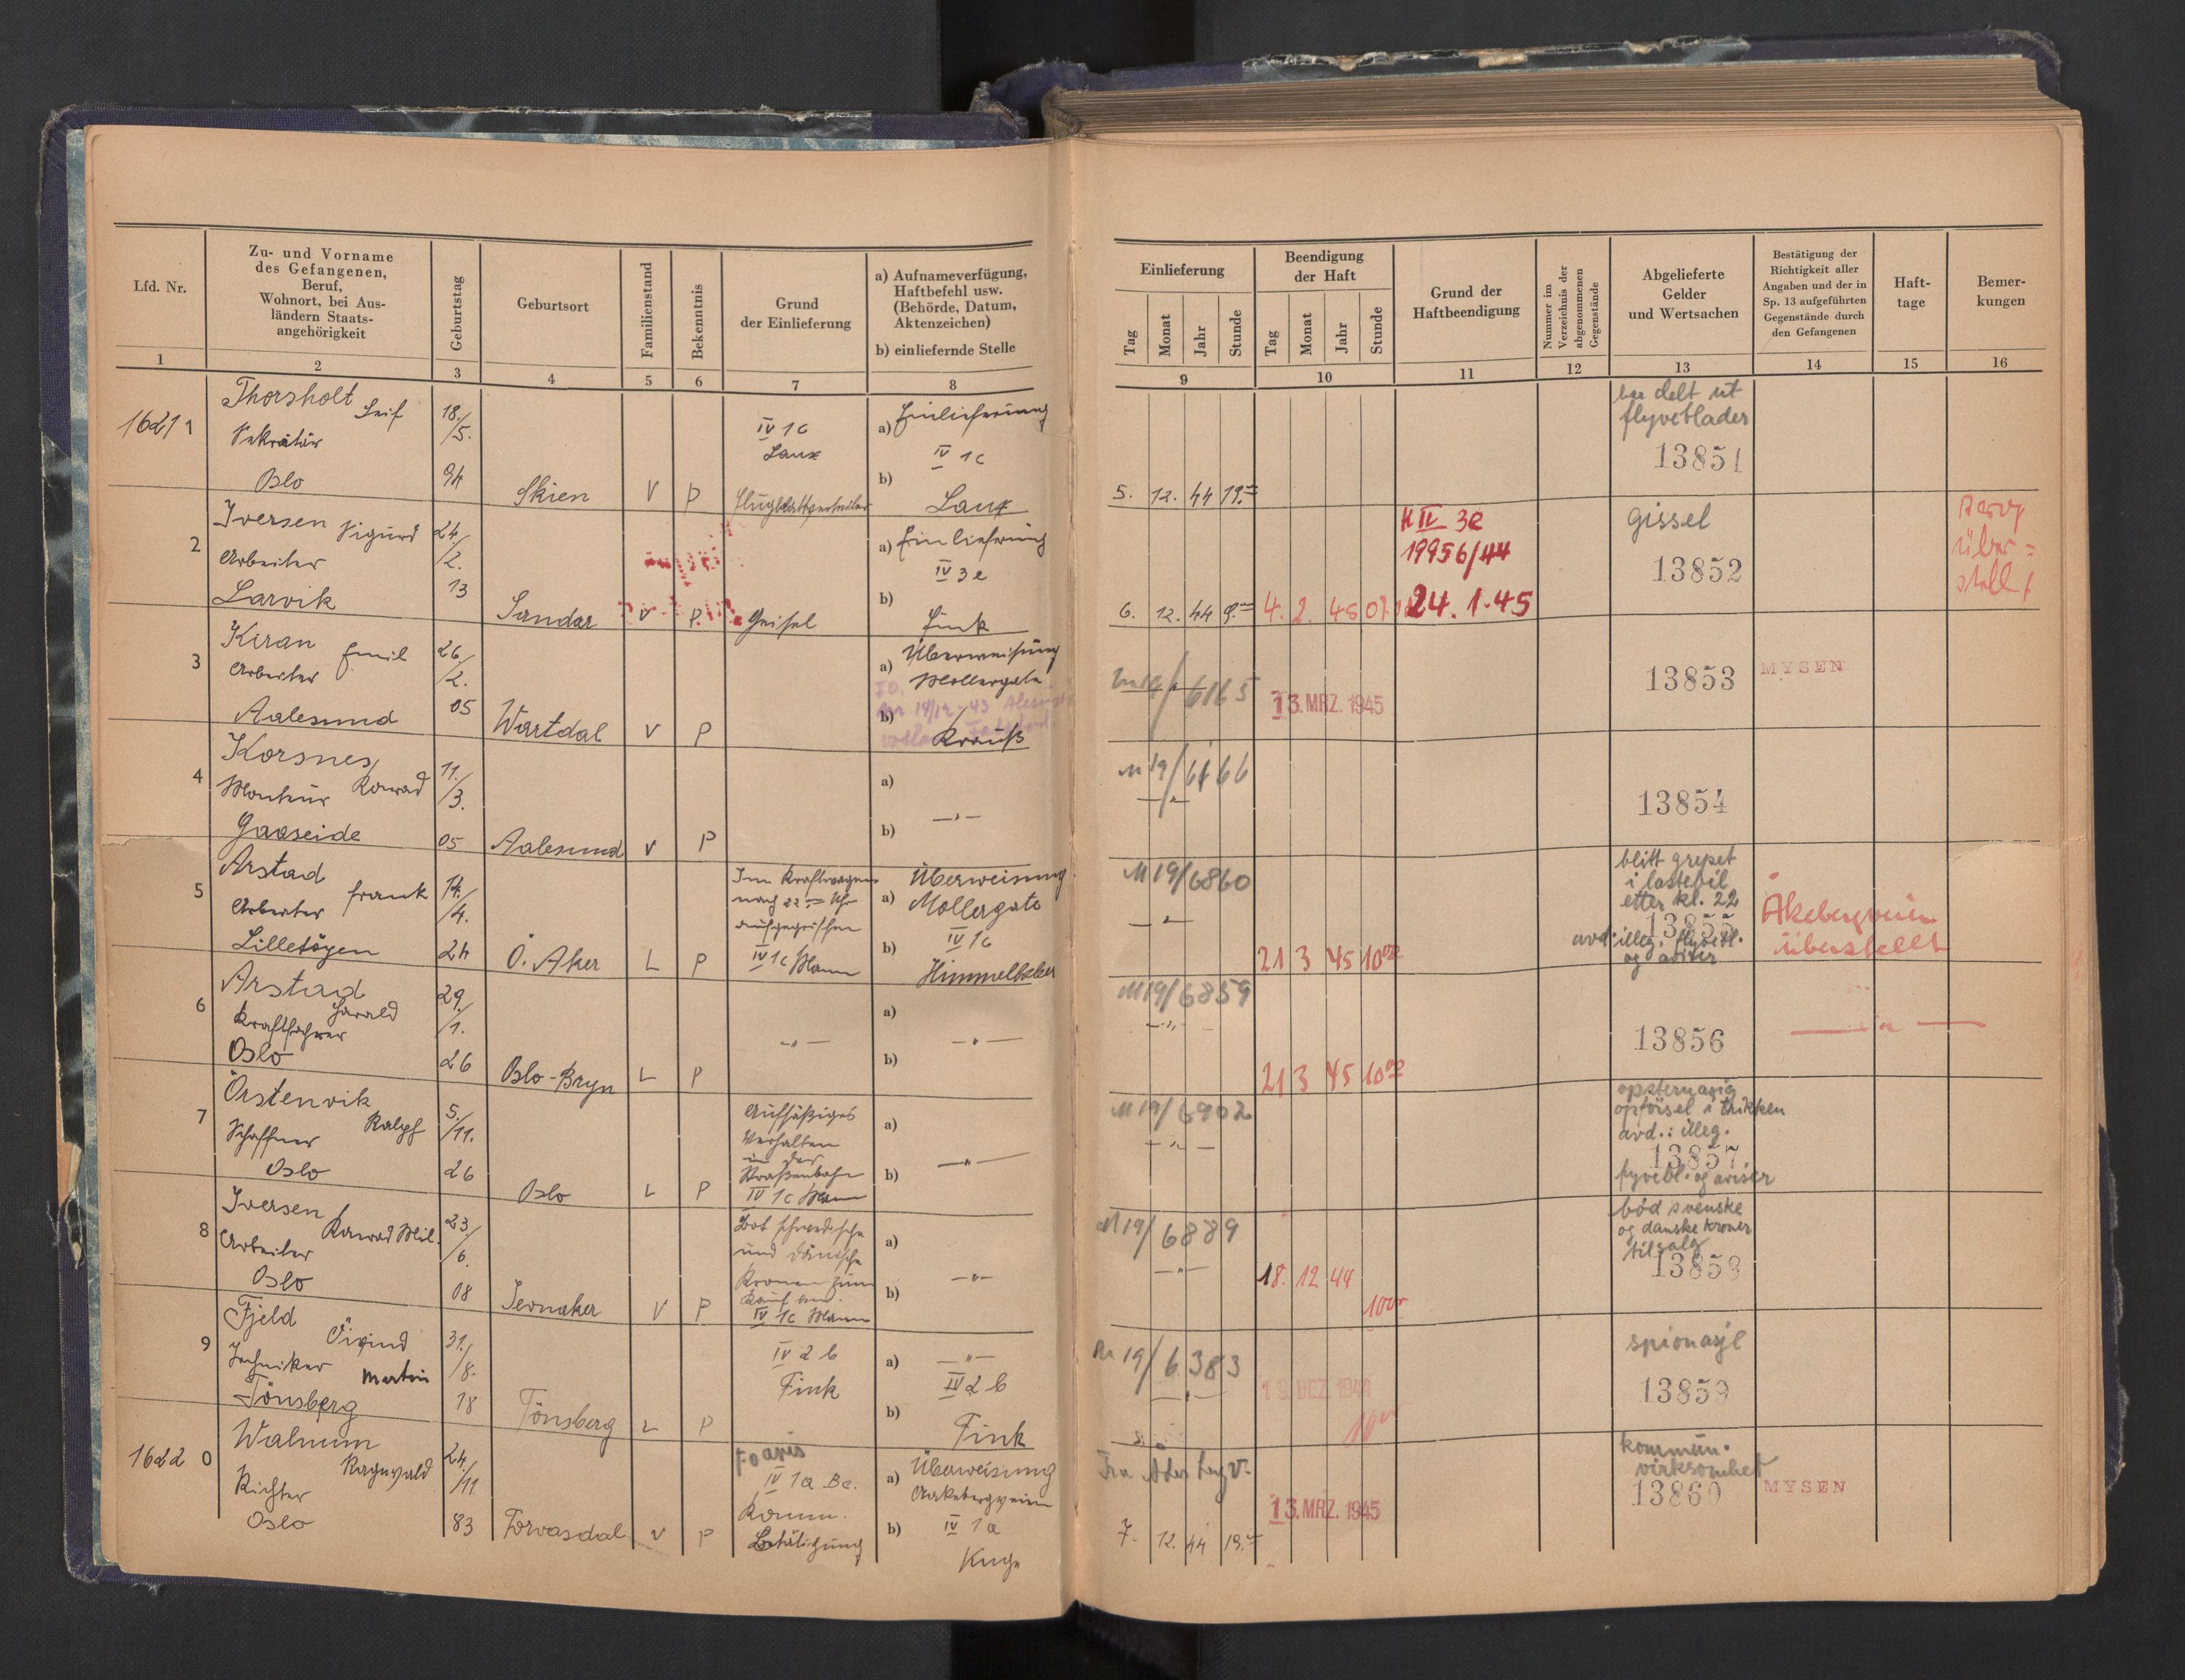 Lfd. Nr.
Zu- und Vorname
des Gefangenen,
Beruf,
Wohnort, bei Aus-
ländern Staats-
angehörigkeit
Geburtstag
Geburtsort
Familienstand
Bekenntnis
Grund
der Einlieferung
a) Aufnameverfügung,
Haftbefehl usw.
(Behörde, Datum,
Aktenzeichen)
b) einliefernde Stelle
Einlieferung
Tag Monat Jahr Stunde
Beendigung
der Haft
Tag Monat Jahr Stunde
Grund der
Haftbeendigung
Nummer im
Verzeichnis der
abgenommenen
Gegenstände
Abgelieferte
Gelder
und Wertsachen
Bestätigung der
Richtigkeit aller
Angaben und der in
Sp. 13 aufgeführten
Gegenstände durch
den Gefangenen
Haft-
tage
Bemer-
kungen
1 2 3 4 5 6 7 8 9 10 11 12 13 14 15 16
1621 1
Thorsholt Leif
Sekretär
Oslo
18./5. 94
Skien V P
IV 1c
Lanz
Flugblattverteiler
a) Einlieferung
IV 1c
b) Lanz
5. 12. 44 19.
har delt ut
flyveblader
13851
2
Iversen Sigurd
Arbeiter
Larvik
24./2. 13
Sandar V P. Geisel
a) Einlieferung
IV 3e
b) Fink
6. 12. 44 9.
4. 2. 45
IV 3e
19956/44
24. 1. 45
gissel
13852
über=
stellt
3
Kiran Emil
Arbeiter
Aalesund
26./2. 05
Wartdal V P
a) Überweisung
Mollergata
b) Krauß
6165
13. MRZ. 1945
13853
MYSEN
4
Korsnes, Konrad
Monteur
Gaaseide
11./3. 05
Aalesund V P
a)
b) —"—
M 19/6166
—"—
13854
5
Årstad Frank
Arbeiter
Lilletögen
14./4. 24
Ö. Aker L P
Im Kraftwagen
nach 22 Uhr
aufgegriffen
IV 1c Mann
Überweisung
a) Mollergata
IV 1c
b) Himmelheber
M 19/6860
—"—
21 3 45 10 00
blitt grepet
i lastebil
etter kl. 22
13855
avd: illeg. flyvebl.
og aviser
Akebergveien
überstellt
6
Årstad Harald
Kraftfahrer
Oslo
29./1. 26
Oslo-Bryn L P
—"—
a)
b) —"—
M 19/6859
—"—
21 3 45 10 00
13856
—"—
7
Örstenvik Ralph
Schaffner
Oslo
5./11. 26
Oslo L P
Aufsäßiges
Verhalten
in der
Straßenbahn
IV 1c Mann
a)
b) —"—
M 19/6902
—"—
opsternasig
opförsel i trikken
avd.: illeg.
13857
flyvebl. og aviser
8
Iversen, Konrad Mil.
Arbeiter
Oslo
23./6. 08
Jevnaker V P
Bot schwedische
und dänische
Kronen zum
Kauf an.
IV 1c Mann
a)
b) —"—
M 19/6889
—"—
18. 12 44
10 00
böd svenske
og danske kroner
til salg
13858
9
Fjeld Öivind
Techniker Martin
Tönsberg
31./8. 18
Tönsberg L P
IV 2 b
Fink
a) —"—
IV 2 b
b) Fink
19/6383
—"—
19. DEZ. 1944
10 00
spionasje
13859
1622 0
Walnum Ragnvald
Richter
Oslo
24./11 83
V P
IV 1a
Komm.
Betätigung
a) Überweisung
Aakebergveien
b) IV 1a
Fra
7. 12. 44 19.
13. MRZ. 1945
kommun.
virksomhet
13860
MYSEN